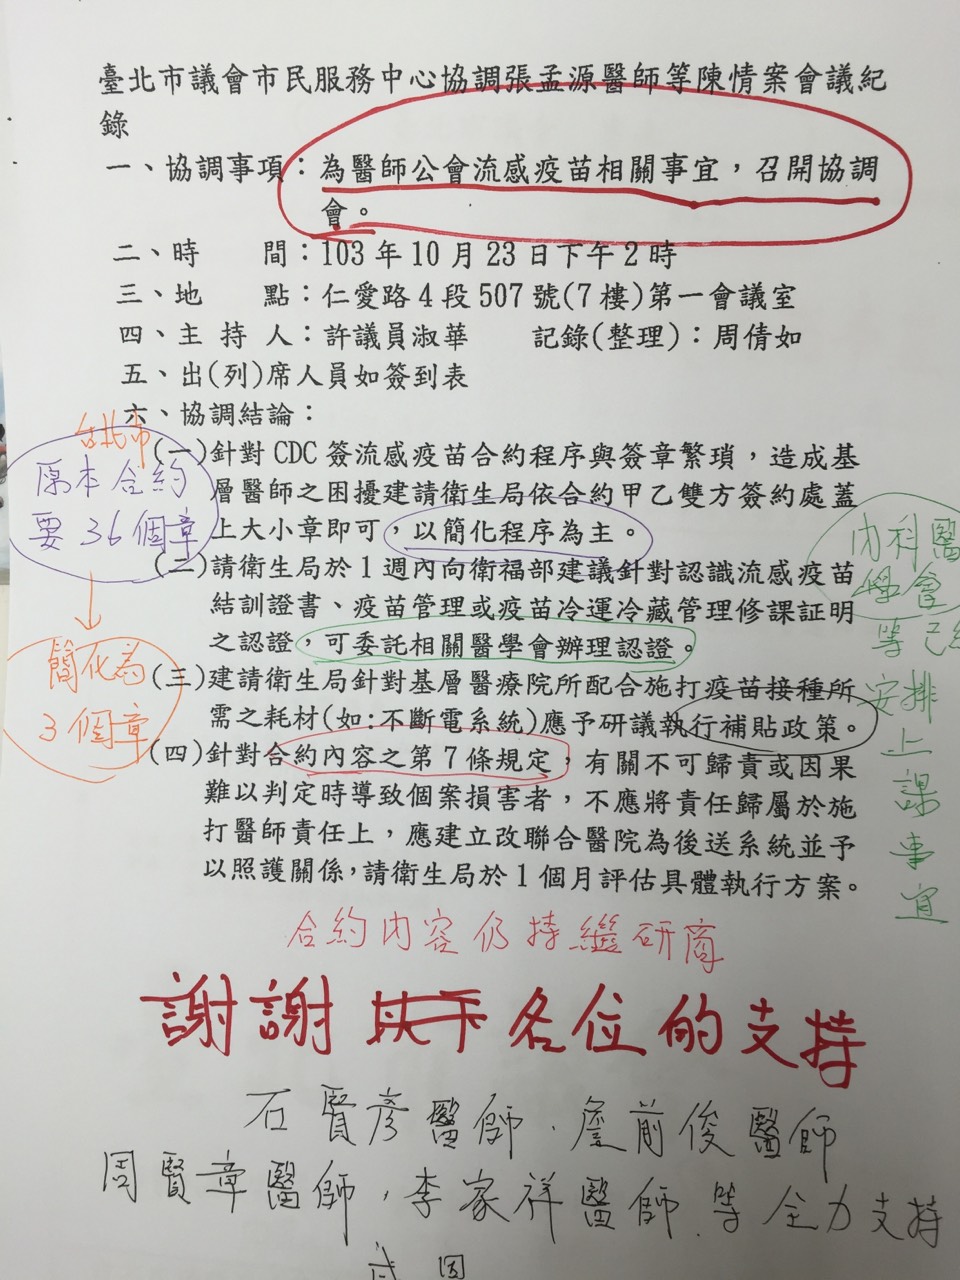 臺北市議會市民服務中心協調張孟源醫師等陳情案會議紀
錄
一、協調事項：為醫師公會流感疫苗相關事宜，召開協調
會。
二、時　　間：103 年 10 月 23 日下午 2 時
三、地　　點：仁愛路 4 段 507 號(7 樓)第一會議室
四、主 持 人：許議員淑華　　記錄(整理)：周倩如
五、出(列)席人員如簽到表
六、協調結論：
(一)針對 CDC 簽流感疫苗合約程序與簽章繁瑣，造成基
層醫師之困擾建請衛生局依合約甲乙雙方簽約處蓋
上大小章即可，以簡化程序為主。
(二)請衛生局於 1 週內向衛福部建議針對認識流感疫苗
結訓證書、疫苗管理或疫苗冷運冷藏管理修課証明
之認證，可委託相關醫學會辦理認證。
(三)建請衛生局針對基層醫療院所配合施打疫苗接種所
需之耗材(如:不斷電系統)應予研議執行補貼政策。
(四)針對合約內容之第 7 條規定，有關不可歸責或因果
難以判定時導致個案損害者，不應將責任歸屬於施
打醫師責任上，應建立改聯合醫院為後送系統並予
以照護關係，請衛生局於 1 個月評估具體執行方案。
台北市
原本合約
要 36 個章
簡化為
3 個章
內科醫
學會
等已經
安排
上
課
事
宜
合約內容仍持繼研商
謝謝 各位的支持
石賢彥醫師、詹前俊醫師
周賢章醫師，李家祥醫師等全力支持